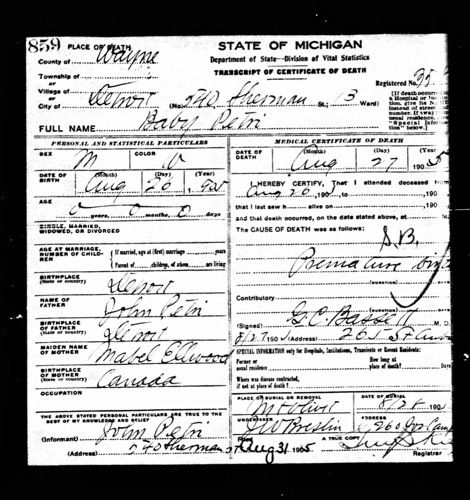 859 PLACE OF DEATH
County of Wayne
Township of
or
Village of
or
City of Detroit (No. 540 Sherman St.; 13 Ward)
FULL NAME Baby Petri
STATE OF MICHIGAN
Department of State—Division of Vital Statistics
TRANSCRIPT OF CERTIFICATE OF DEATH
Registered No. 35
PERSONAL AND STATISTICAL PARTICULARS
SEX M COLOR
DATE OF BIRTH (Month) (Day) (Year)
Aug 26
AGE
0 years, 0 months, 0 days
SINGLE, MARRIED, WIDOWED, OR DIVORCED
AGE AT MARRIAGE, NUMBER OF CHILDREN
If married, age at (first) marriage years
Parent of children, of whom are living
BIRTHPLACE (State or country) Detroit
NAME OF FATHER John Petri
BIRTHPLACE OF FATHER (State or country) Detroit
MAIDEN NAME OF MOTHER Mabel Ellwood
BIRTHPLACE OF MOTHER (State or country) Canada
OCCUPATION
THE ABOVE STATED PERSONAL PARTICULARS ARE TRUE TO THE BEST OF MY KNOWLEDGE AND BELIEF
(Informant) John Petri
(Address) 540 Sherman st
MEDICAL CERTIFICATE OF DEATH
DATE OF DEATH (Month) (Day) (Year)
Aug 27 1905
I HEREBY CERTIFY, That I attended deceased from
Aug 26 190
that I last saw h alive on
and that death occurred, on the date stated above, at
The CAUSE OF DEATH was as follows:
S.B.
Premature
(DURATION)
Contributory
(DURATION)
(Signed) G C Bassett M. D.
8/27 1905 (Address) 265 St
SPECIAL INFORMATION only for Hospitals, Institutions, Transients or Recent Residents:
Former or usual residence How long at place of
Where was disease contracted, if not at place of death?
PLACE OF BURIAL OR REMOVAL DATE OF BURIAL
Mt Olivet 8/28 190
UNDERTAKER ADDRESS
J W Breslin 860 Jos Camp
Aug 31 1905 A TRUE COPY